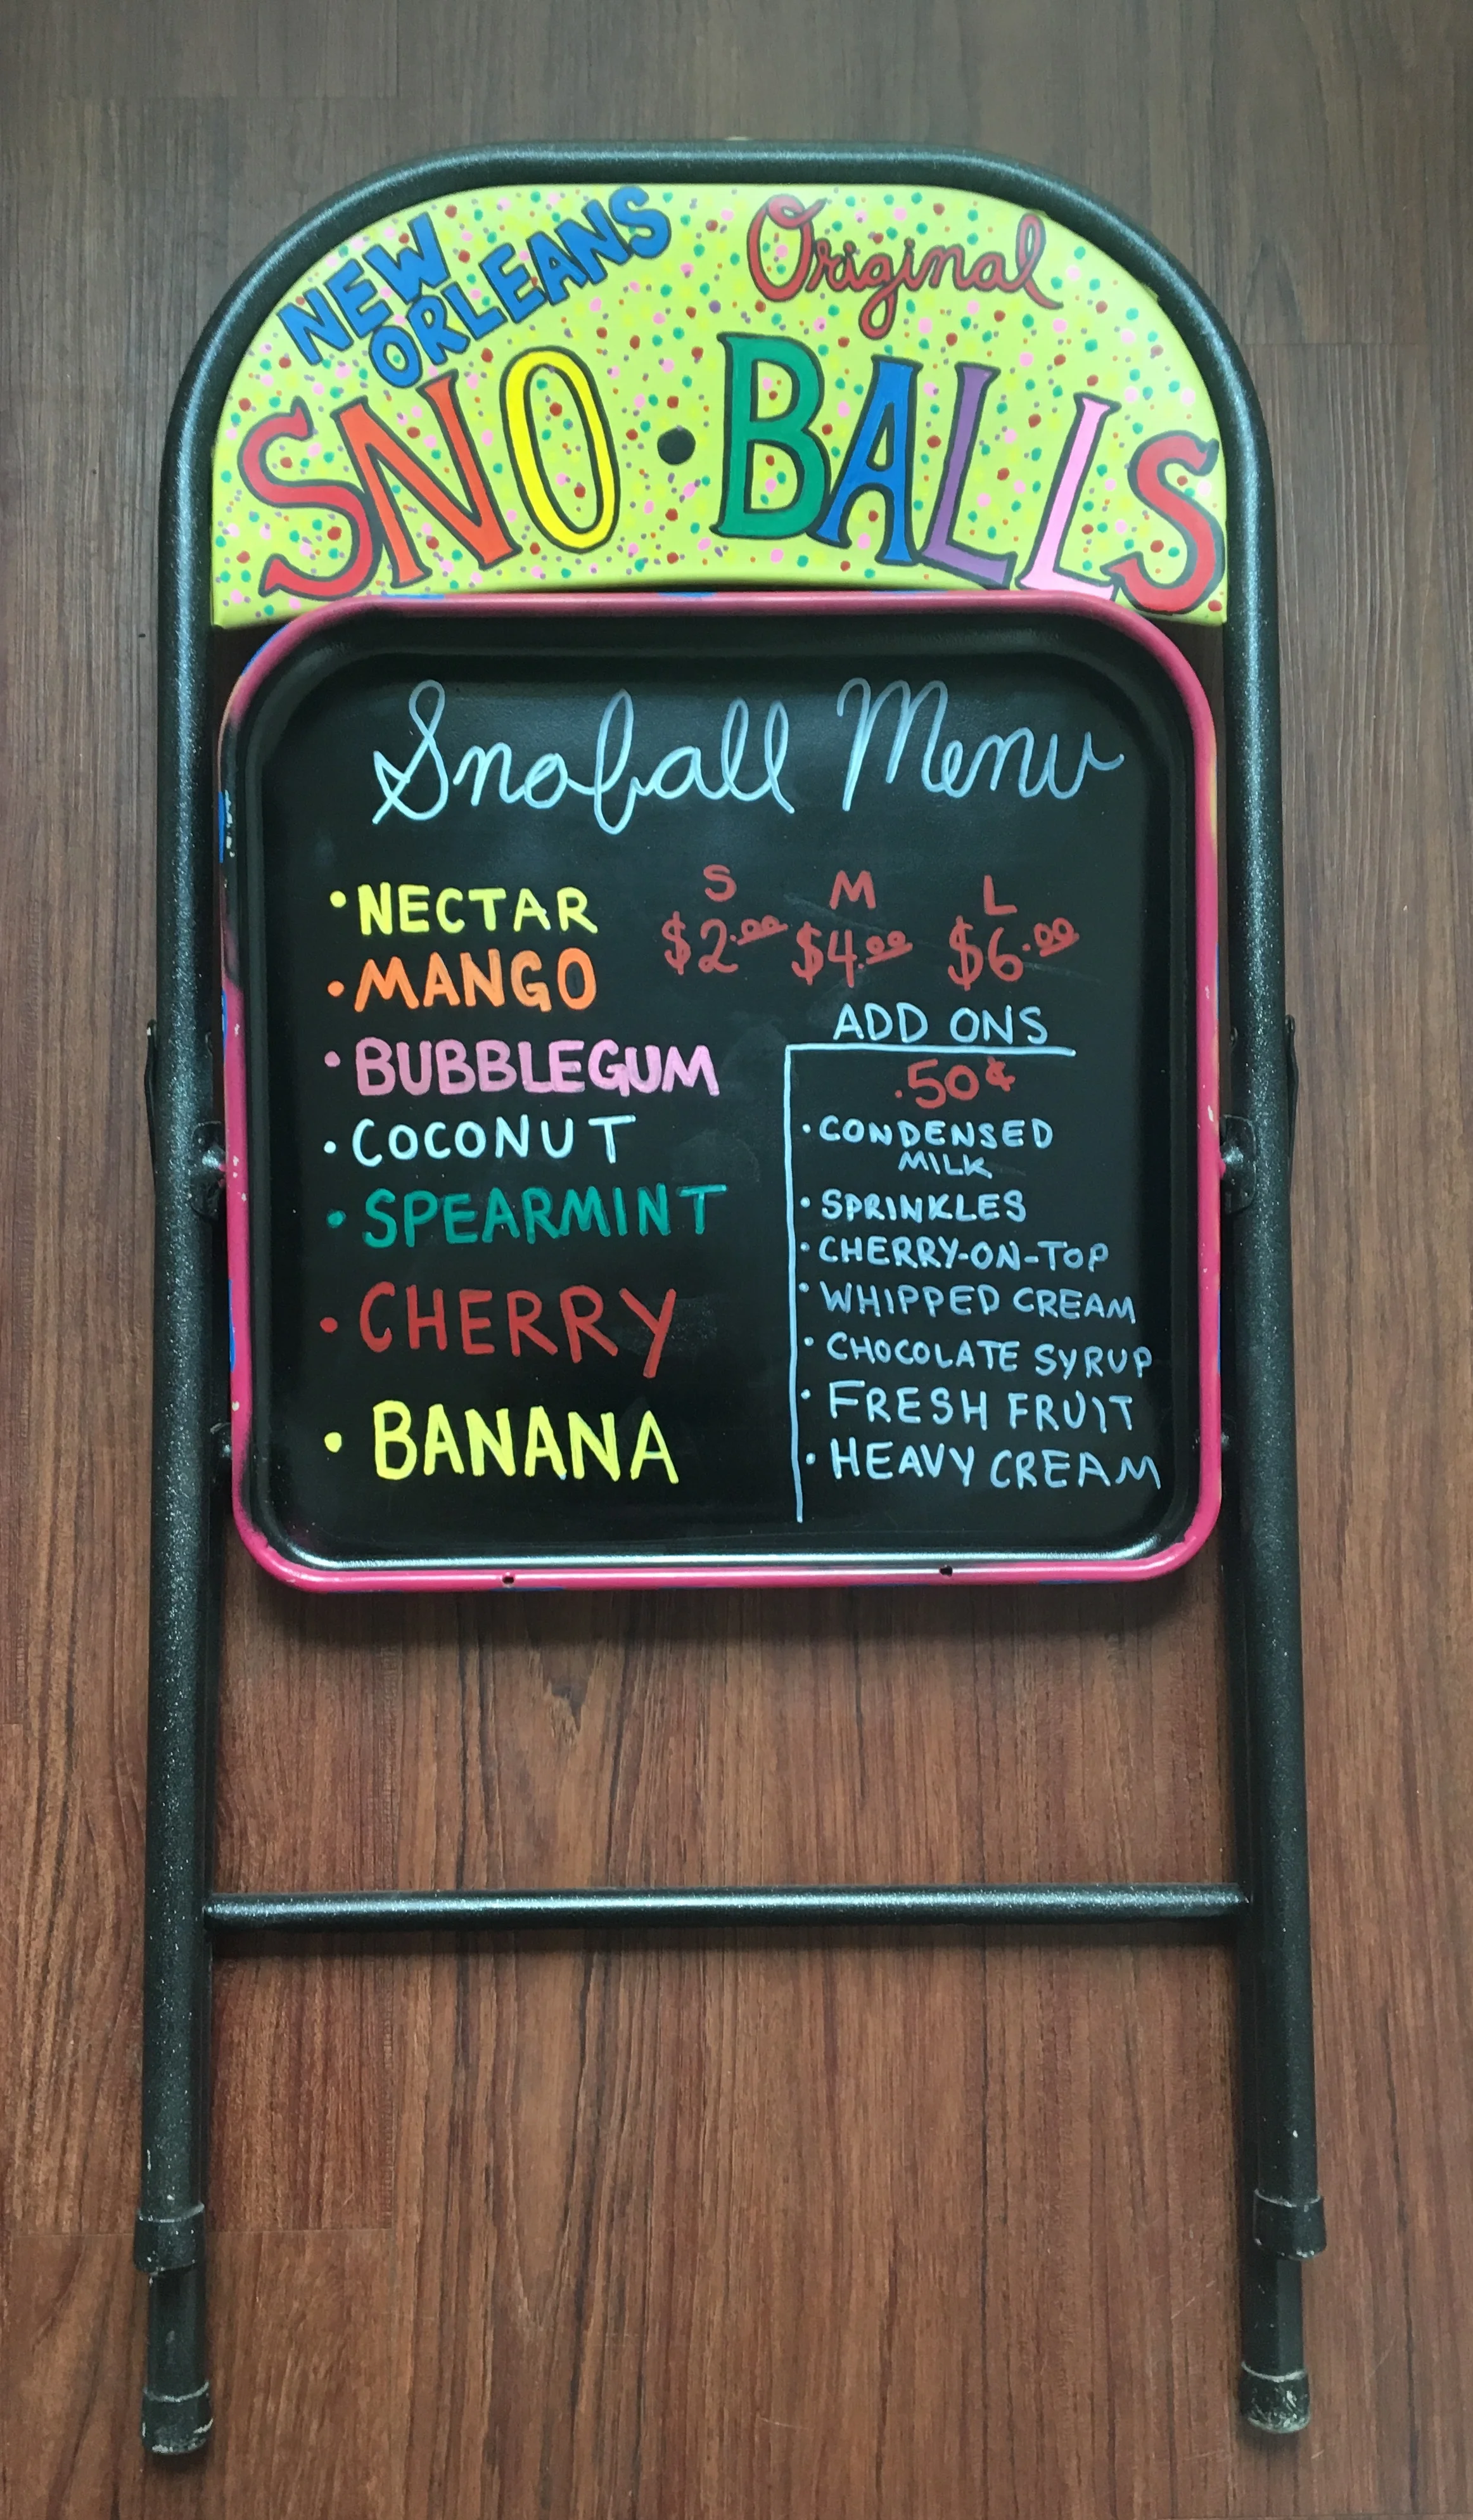 NEW
ORLEANS
Original
SNO•BALLS
Snoball Menu
S M L
$2.00 $4.00 $6.00
• NECTAR
• MANGO
• BUBBLEGUM
• COCONUT
• SPEARMINT
• CHERRY
• BANANA
ADD ONS
.50¢
• CONDENSED
MILK
• SPRINKLES
• CHERRY-ON-TOP
• WHIPPED CREAM
• CHOCOLATE SYRUP
• FRESH FRUIT
• HEAVY CREAM